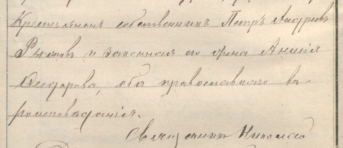 Крестьянинъ собственникъ Петръ Андреевъ
Рыловъ и законная его жена Анисiя
Ѳедорова, оба православнаго вѣ
роисповѣданiя.
Священникъ Николай